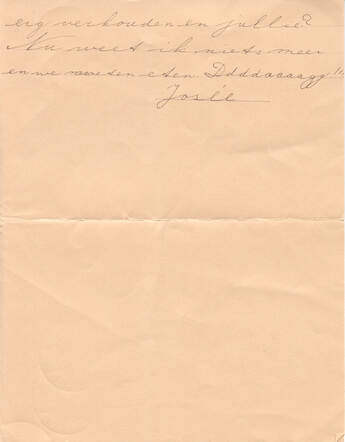 erg verkouden en jullie?
Nu weet ik niets meer
en we moeten eten Dddddaaaagg!!!
Josée